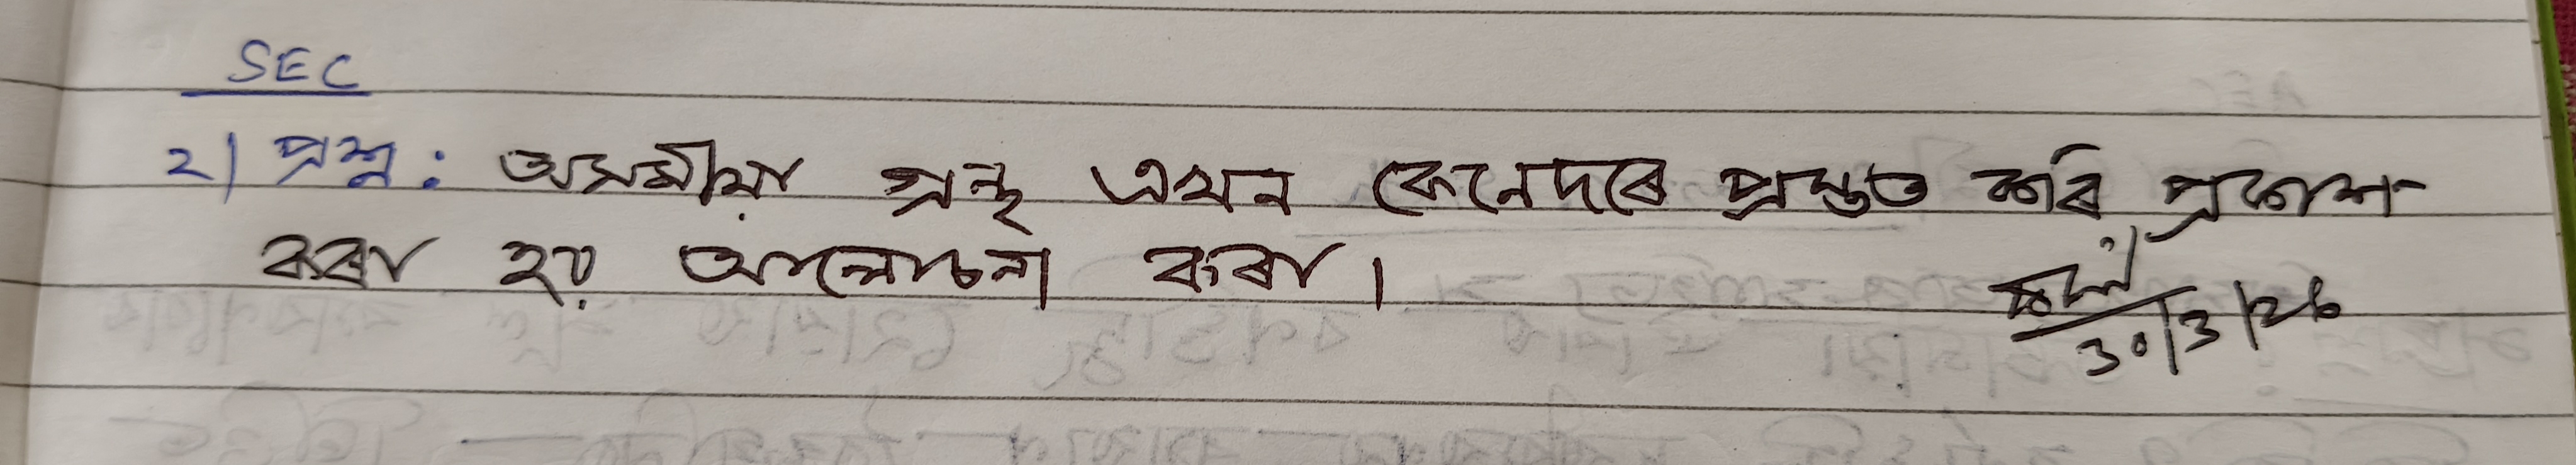 SEC
২) প্ৰশ্ন : অসমীয়া গ্ৰন্থ এখন কেনেদৰে প্ৰস্তুত কৰি প্ৰকাশ
কৰা হয় আলোচনা কৰা।
30/3/26